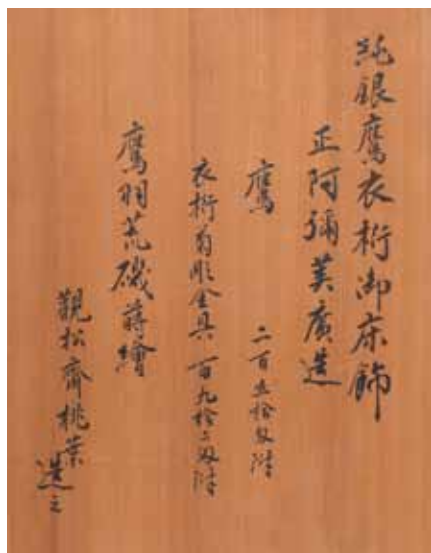 純銀鷹衣桁御床飾
正阿彌美廣造
鷹 二百五拾匁
衣桁 彫金具 百九拾二匁
鷹羽荒磯蒔繪
觀松齊桃葉造之